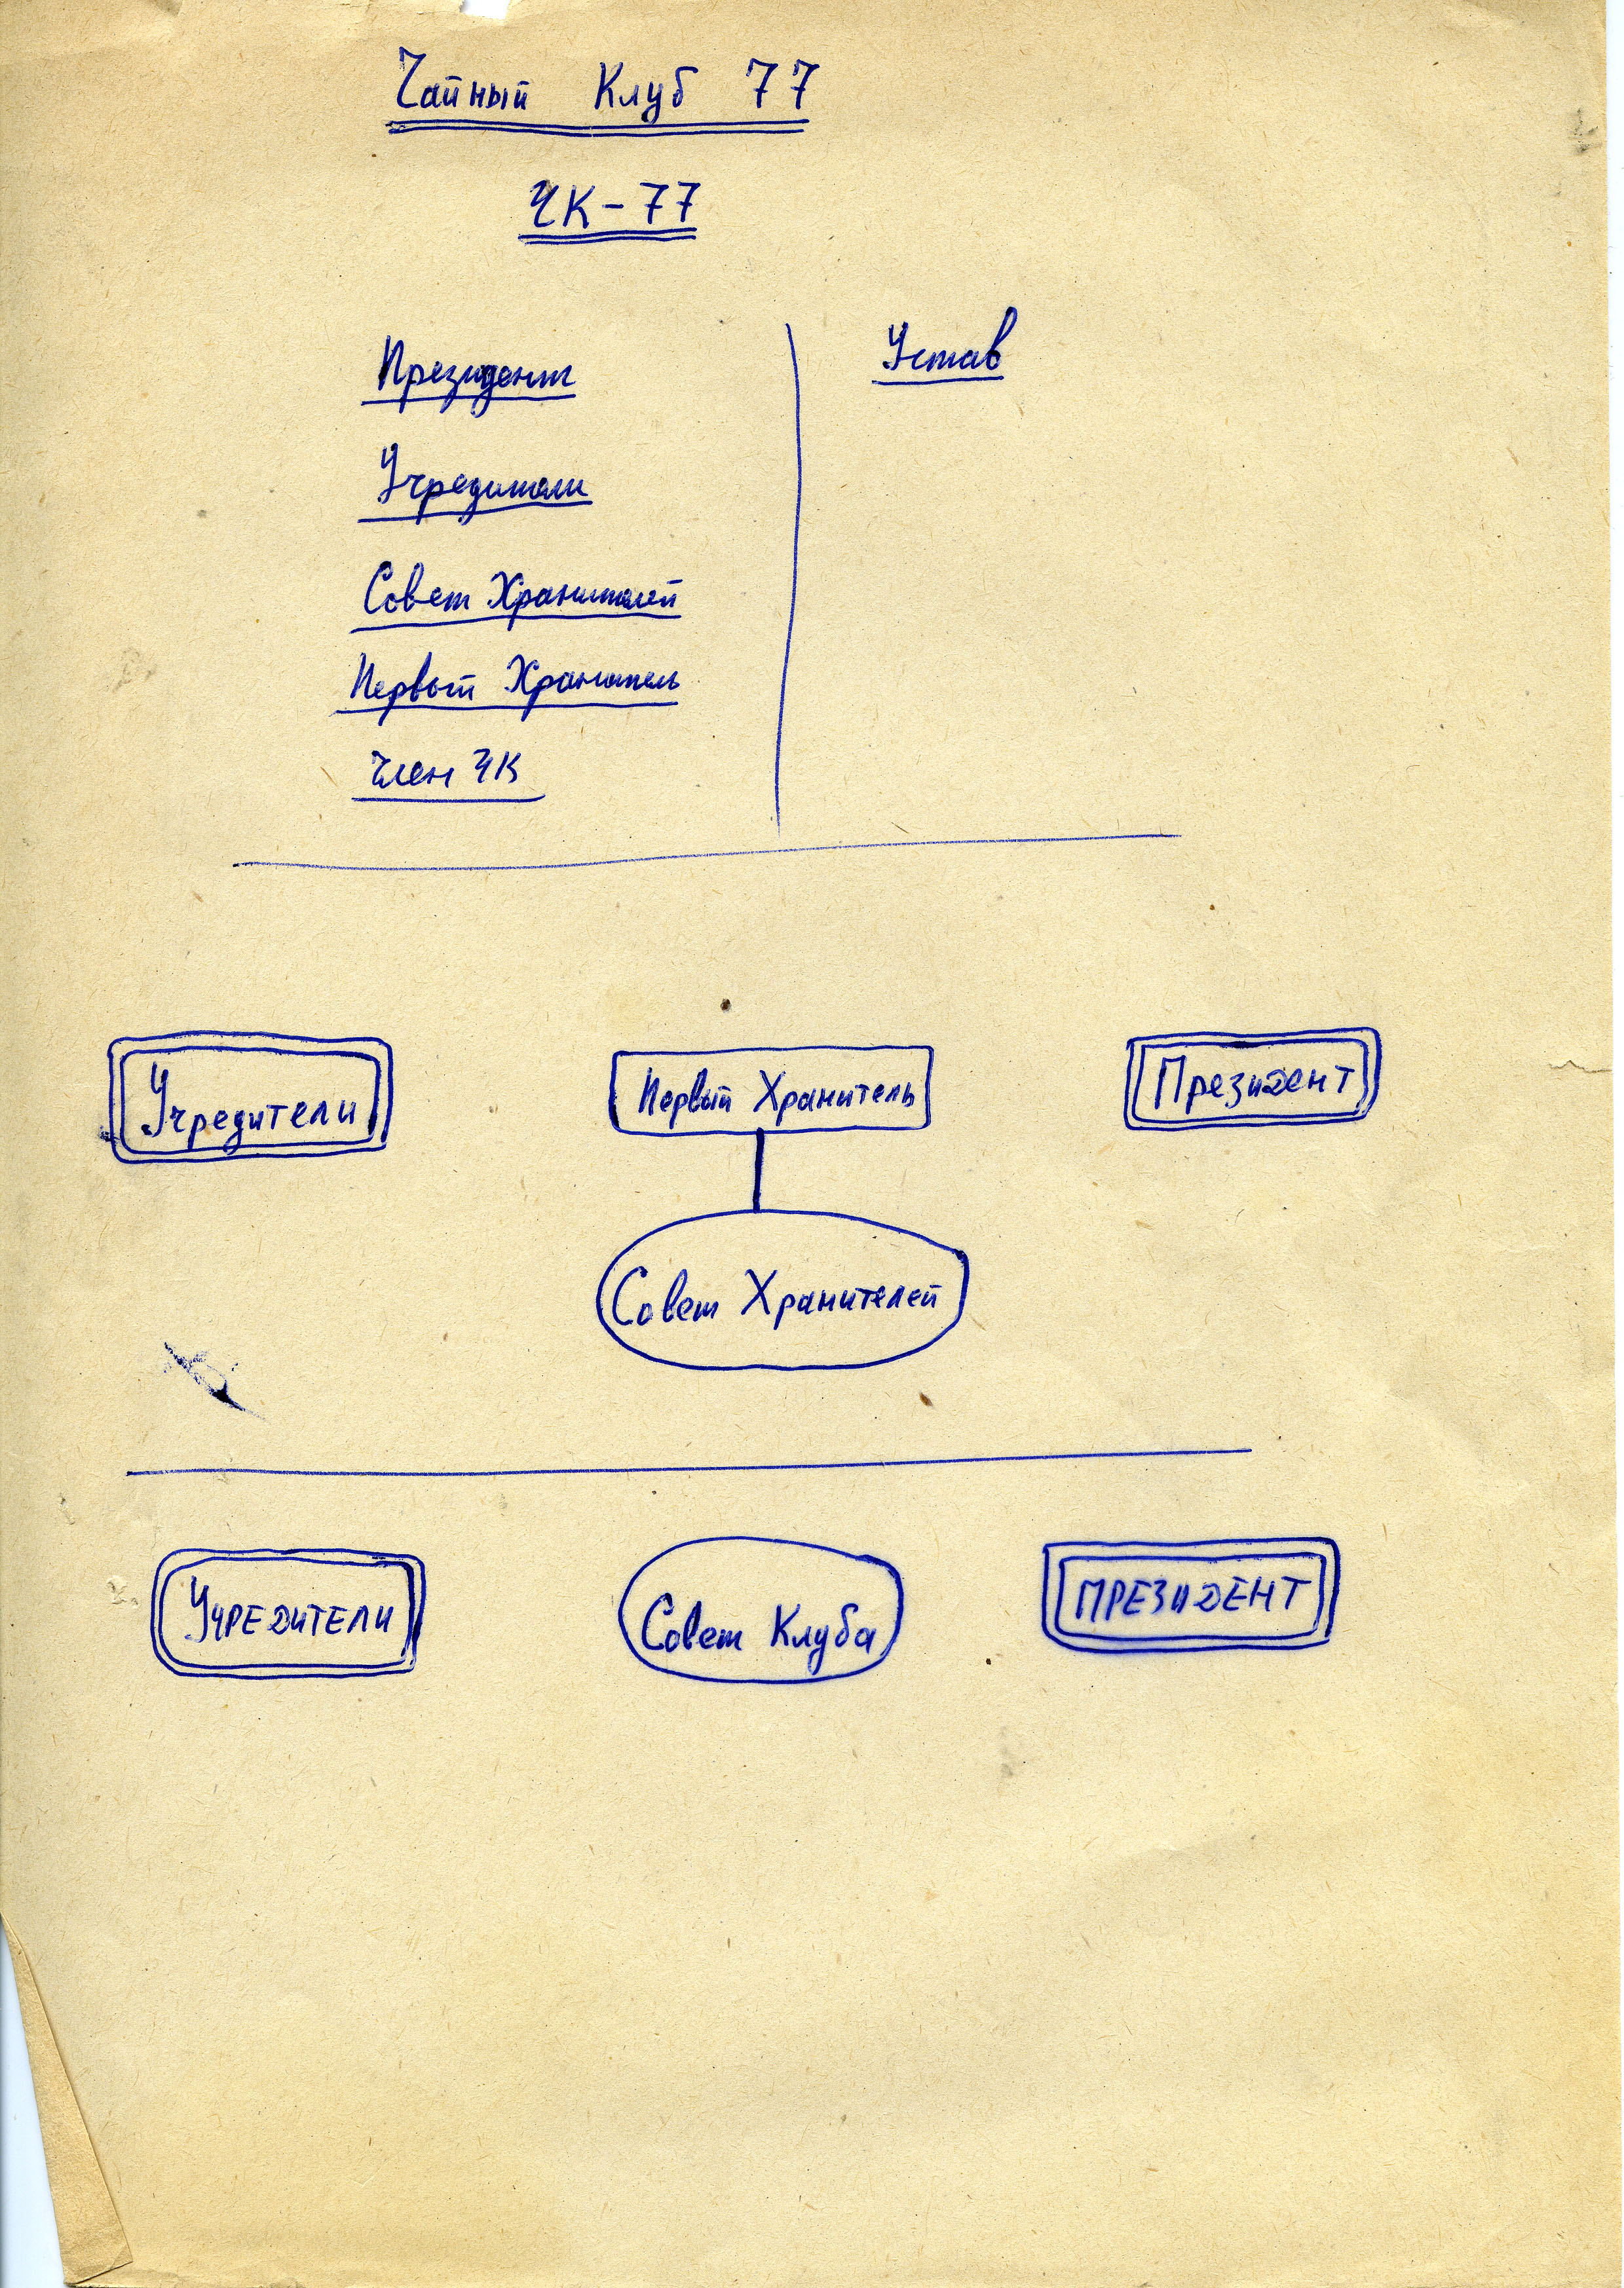 Чайный Клуб 77
ЧК-77
Президент
Учредители
Совет Хранителей
Первый Хранитель
Член ЧК
Устав
Учредители
Первый Хранитель
Президент
Совет Хранителей
УЧРЕДИТЕЛИ
Совет Клуба
ПРЕЗИДЕНТ